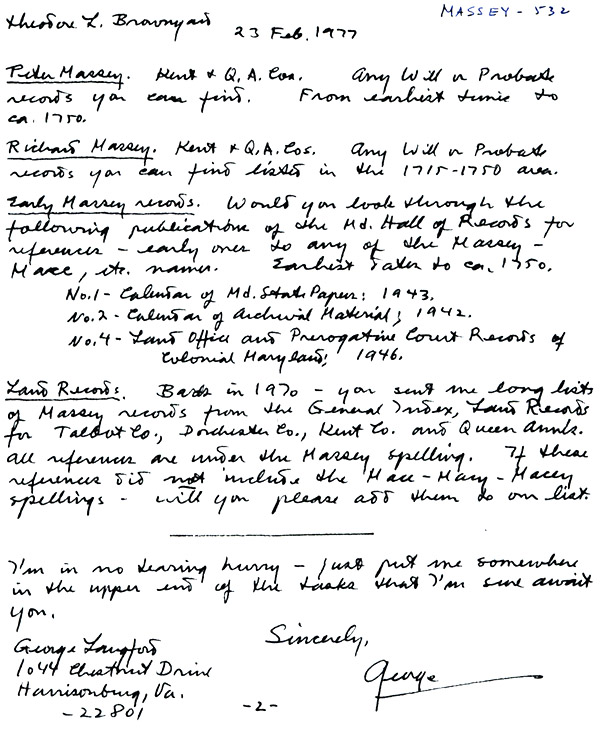 Theodore L. Brownyard
23 Feb. 1977
MASSEY - 532
Peter Massey. Kent & Q.A. Cos. Any Will or Probate
records you can find. From earliest time to
ca. 1750.
Richard Massey. Kent & Q.A. Cos. Any Will or Probate
records you can find listed in the 1715-1750 area.
Early Massey records. Would you look through the
following publications of the Md. Hall of Records for
references - early ones to any of the Massey -
Mace, etc. names. Earliest dates to ca. 1750.
No. 1 - Calendar of Md. State Papers; 1943.
No. 2 - Calendar of Archival Material; 1942.
No. 4 - Land Office and Prerogative Court Records of
Colonial Maryland; 1946.
Land Records. Back in 1970 - you sent me long lists
of Massey records from the General Index, Land Records
for Talbot Co., Dorchester Co., Kent Co. and Queen Anne's.
All references are under the Massey spelling. If these
references did not include the Mace - Macy - Macey
spellings - will you please add them to our list.
I'm in no tearing hurry - just put me somewhere
in the upper end of the tasks that I'm sure await
you.
Sincerely,
George
George Langford
1044 Chestnut Drive
Harrisonburg, Va.
- 22801
- 2 -